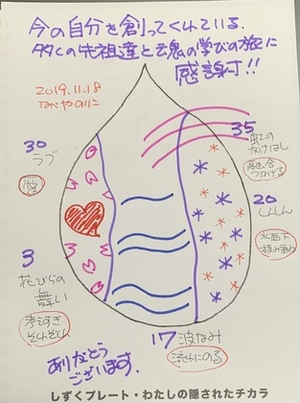 今の自分を創ってくれている
多くの先祖達と魂の学びの旅に
感謝!!
2019.11.18
なべやのりこ
30
ラブ
愛
35
虹の
かけはし
融合
つなげる
20
しんしん
水面下
3
花びらの
舞い
考えすぎ
そんそん
17 波なみ
流れにのる
ありがとう
ございます.
しずくプレート・わたしの隠されたチカラ